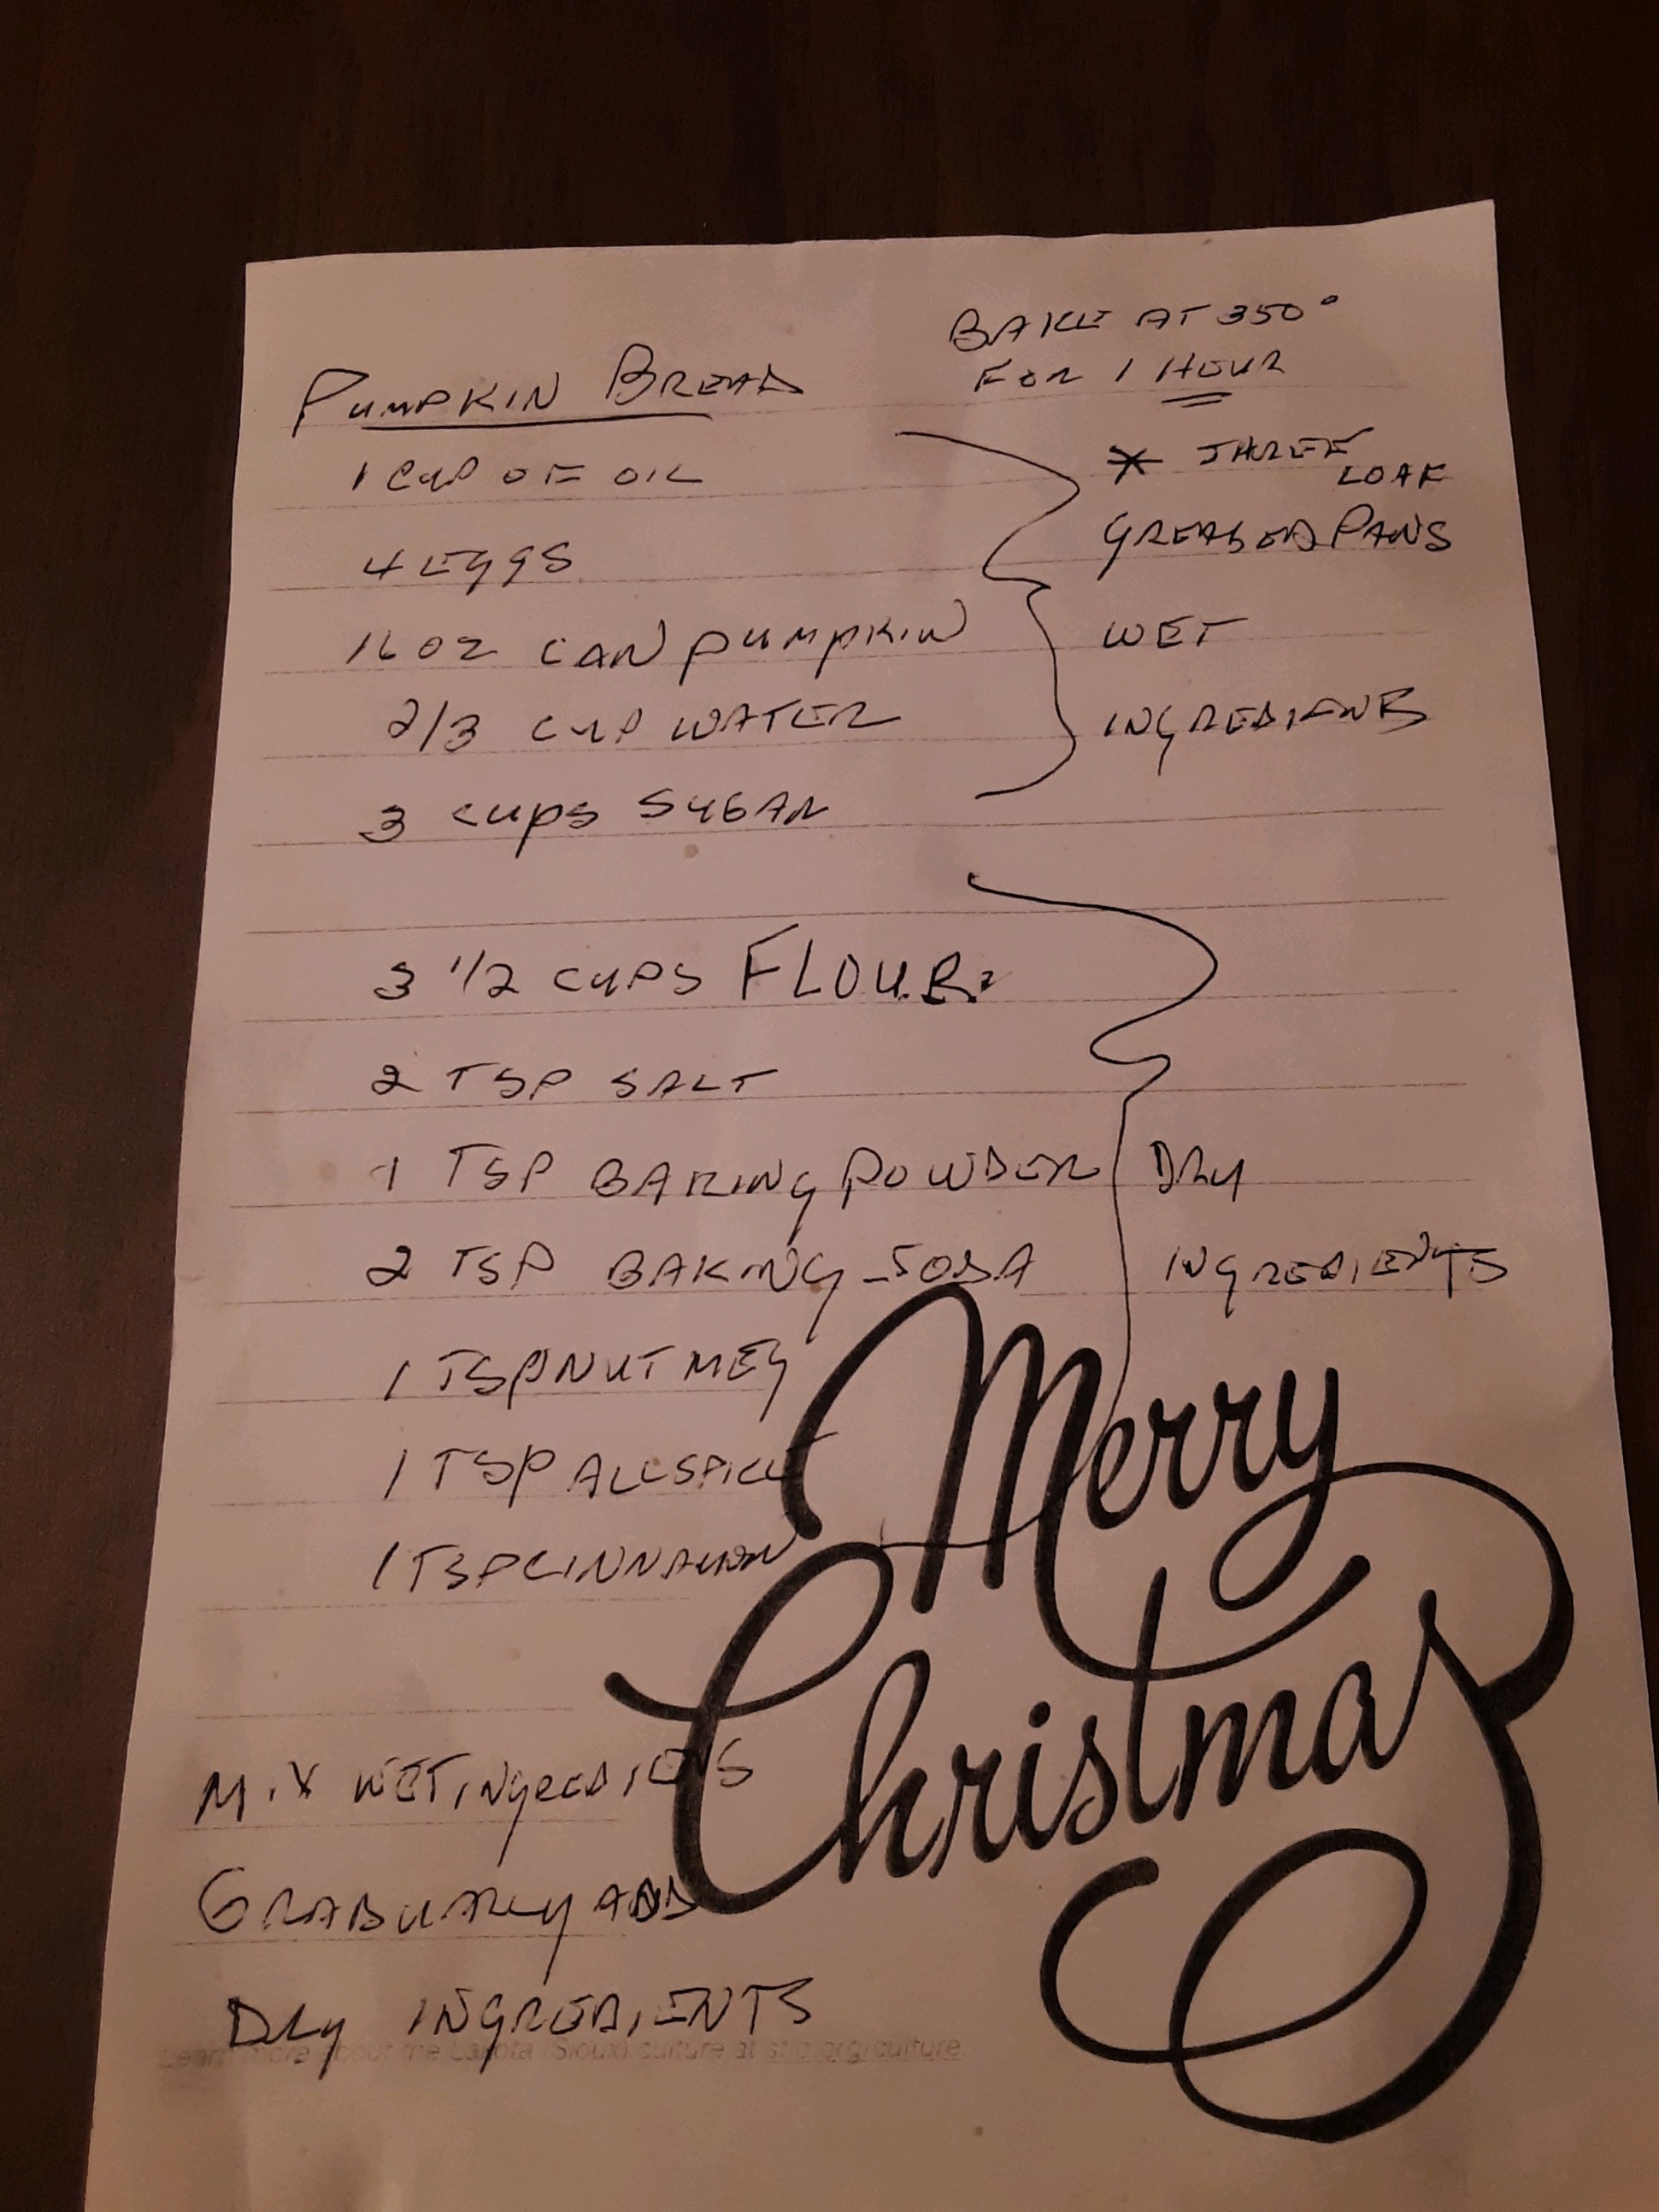 BAKE AT 350°
FOR 1 HOUR
PUMPKIN BREAD
* THREE
LOAF
GREASED PANS
1 CUP OF OIL
4 EGGS
16 OZ CAN PUMPKIN
WET
2/3 CUP WATER
INGREDIENTS
3 CUPS SUGAR
3 1/2 CUPS FLOUR
2 TSP SALT
1 TSP BAKING POWDER
DRY
2 TSP BAKING SODA
INGREDIENTS
1 TSP NUTMEG
1 TSP ALLSPICE
1 TSP CINNAMON
Merry
Christmas
MIX WET INGREDIENTS
GRADUALLY ADD
DRY INGREDIENTS
Learn more about the Lakota (Sioux) culture at stjo.org/culture